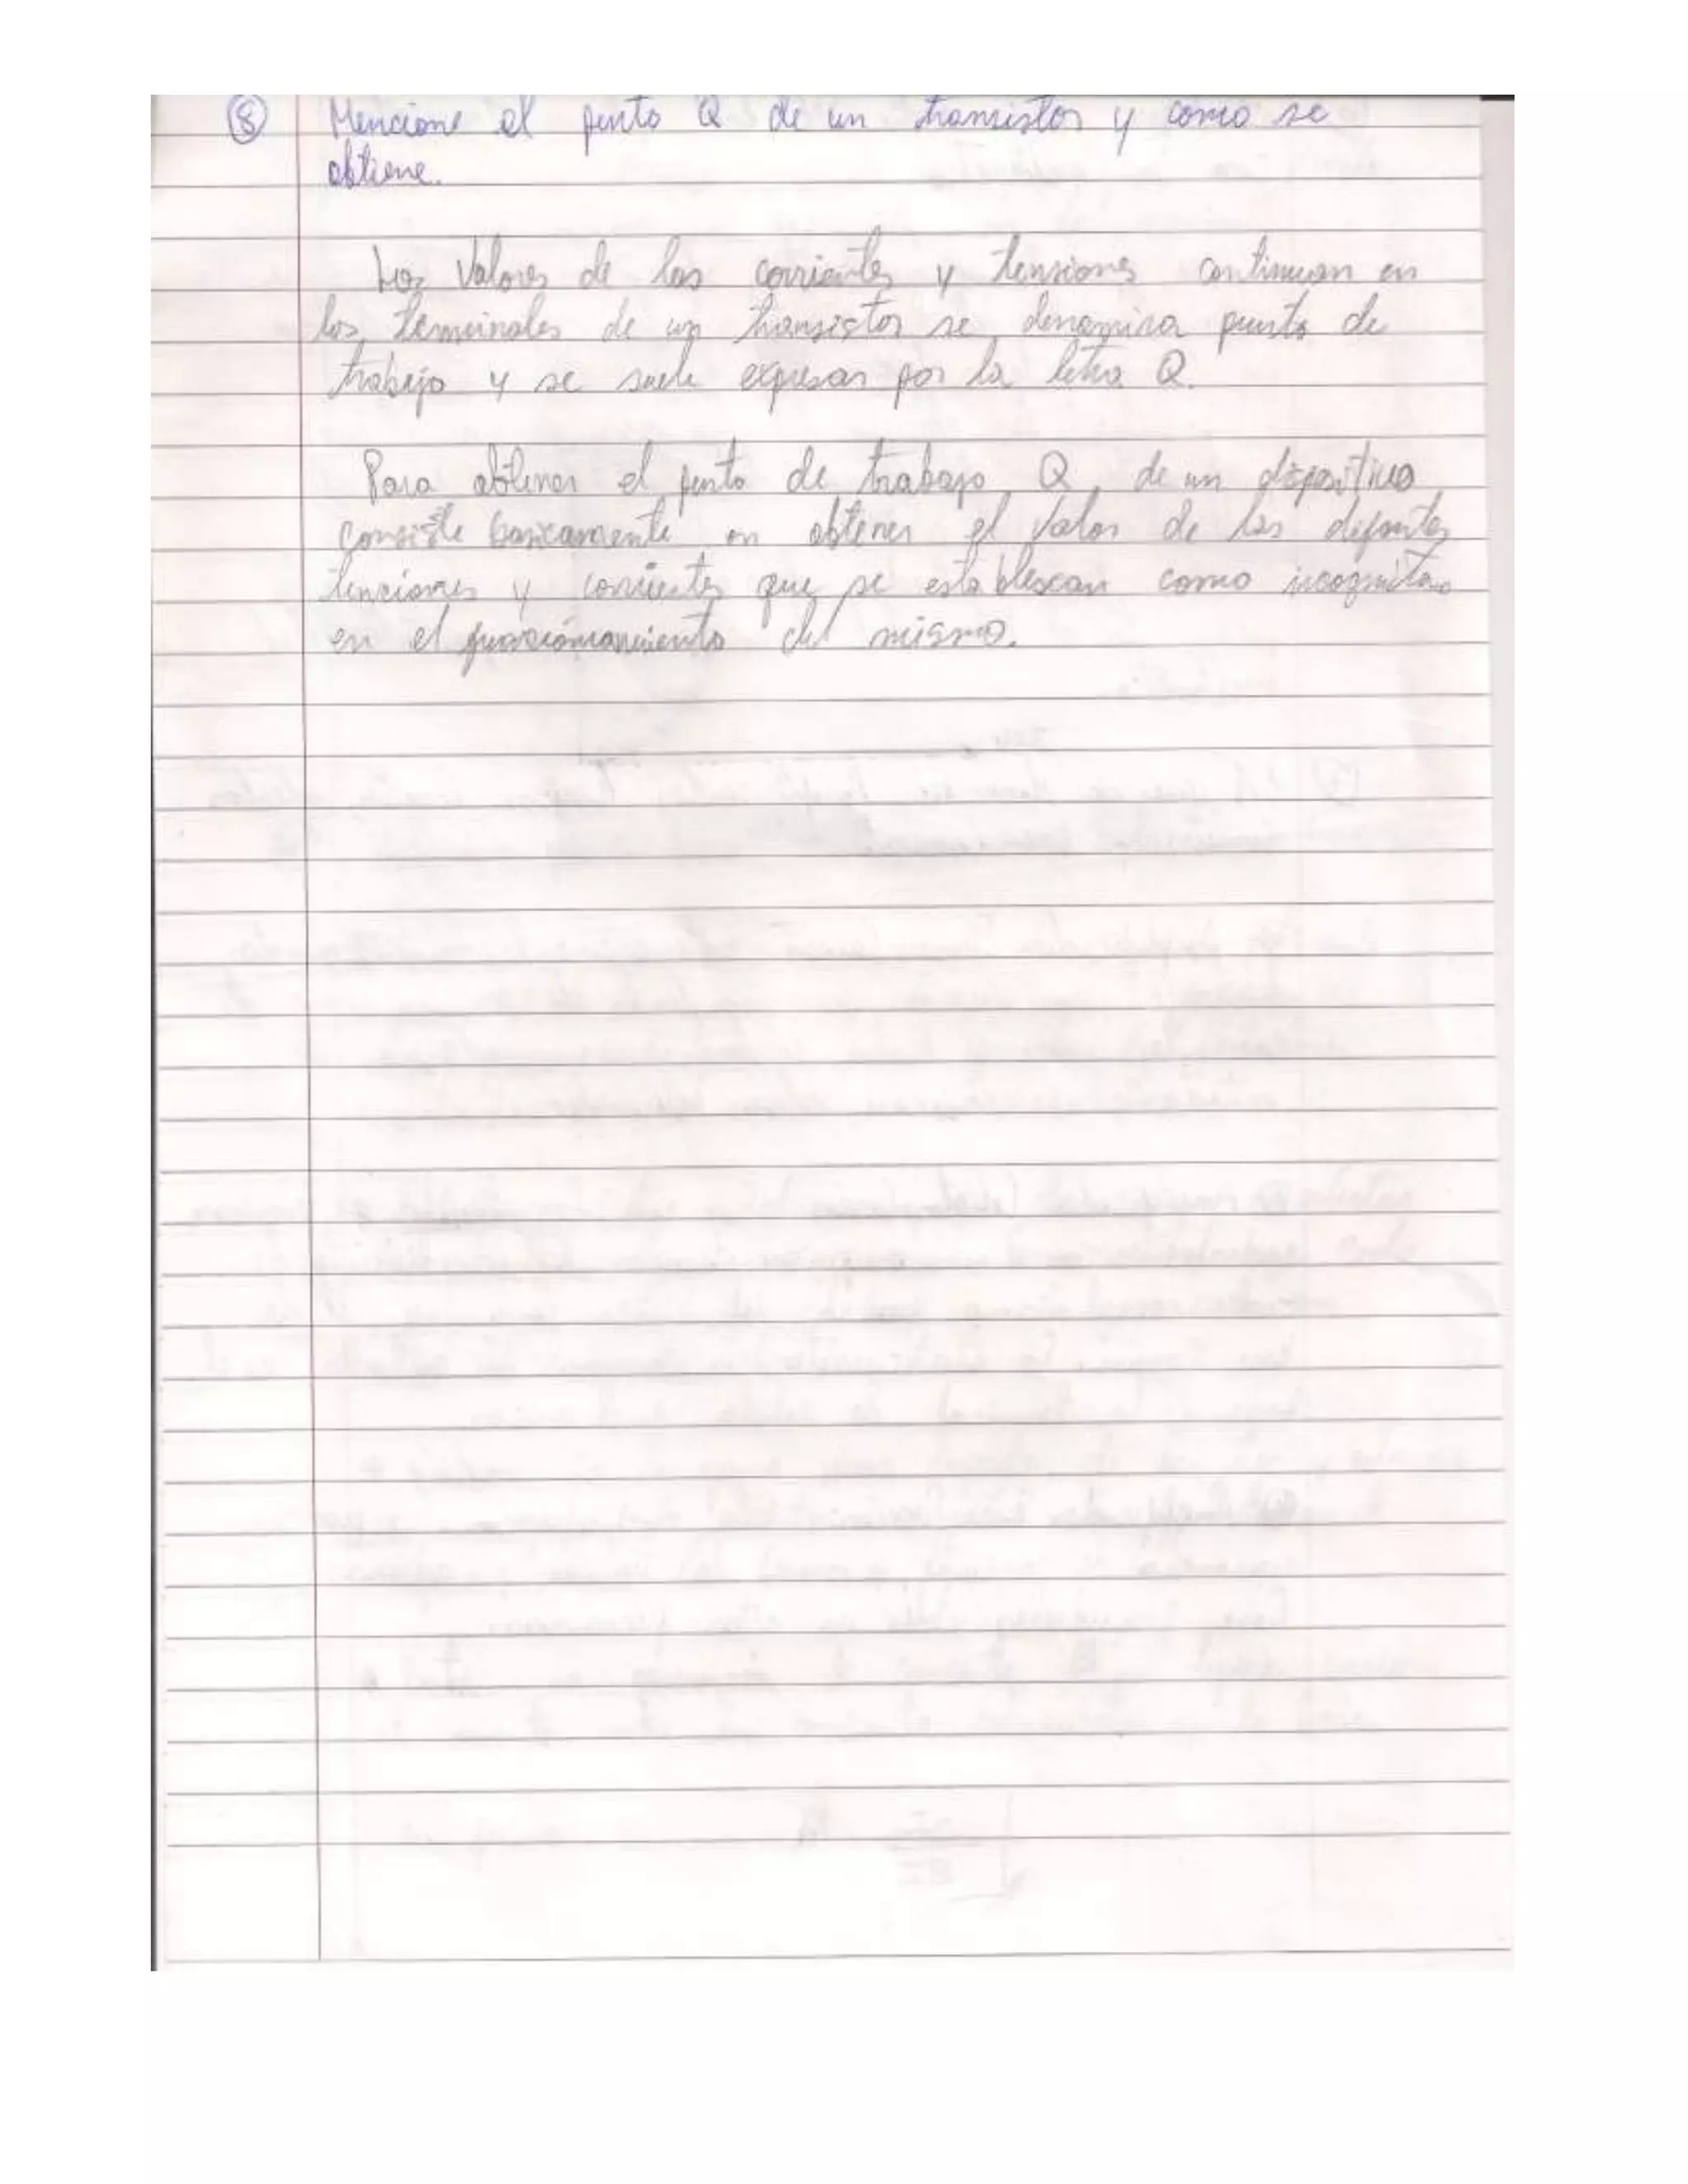 ⑧ Mencione el punto Q de un transistor y como se
obtiene.
Los Valores de las corrientes y tensiones continuan en
los terminales de un transistor se denomina punto de
trabajo y se suele expresar por la letra Q.
Para obtener el punto de trabajo Q, de un dispositivo
consiste basicamente en obtener el valor de las
tenciones y corrientes que se establescan como incognitas
en el funcionamiento del mismo.